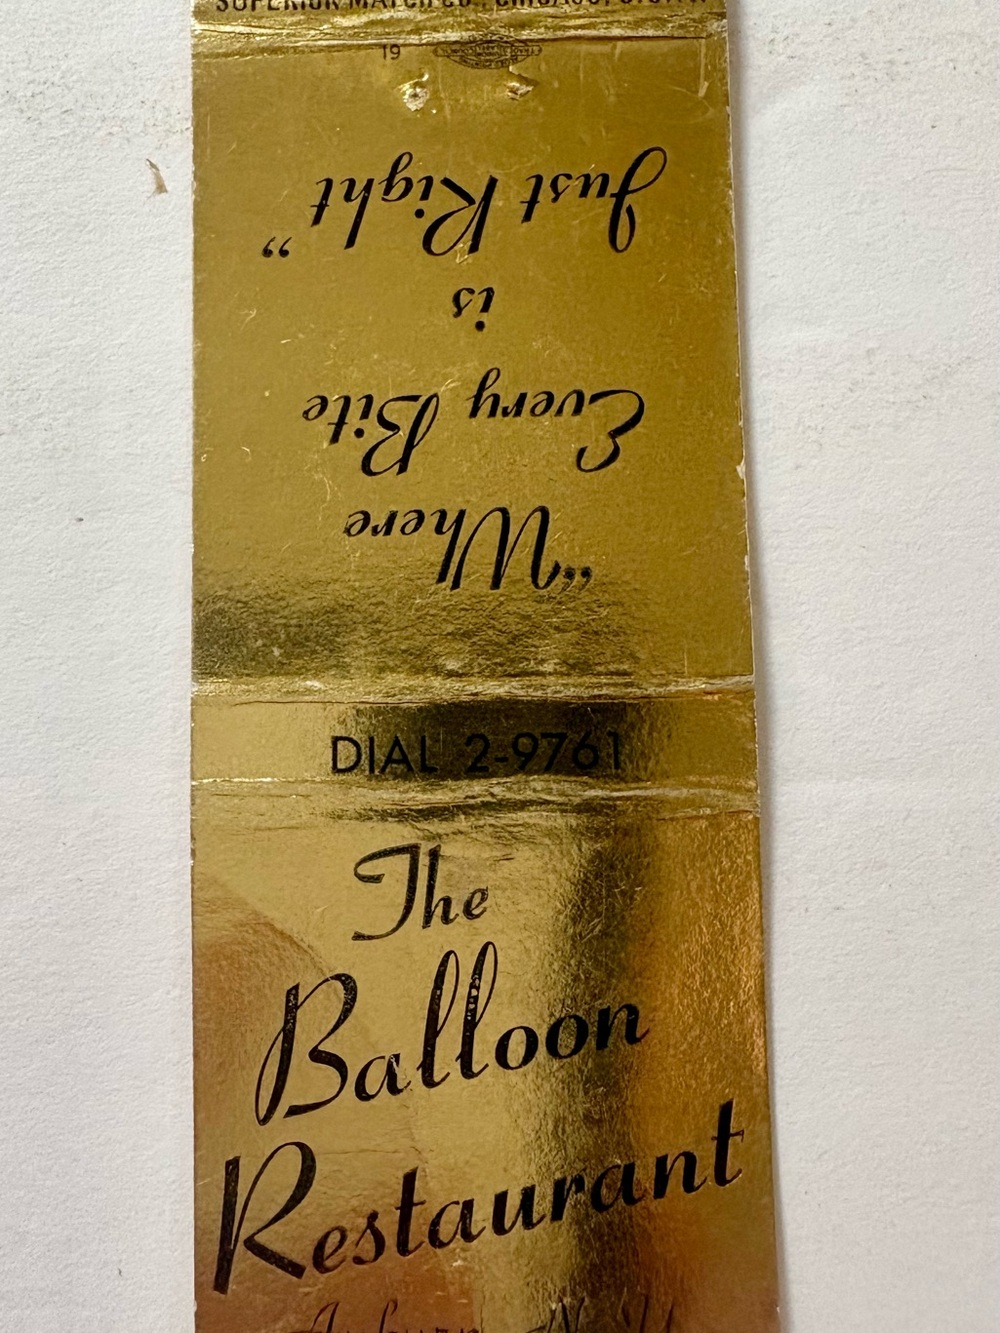 SUPERIOR MATCH CO., CHICAGO, U.S.A.
19
"Where
Every Bite
is
Just Right"
DIAL 2-9761
The
Balloon
Restaurant
Auburn, N.Y.